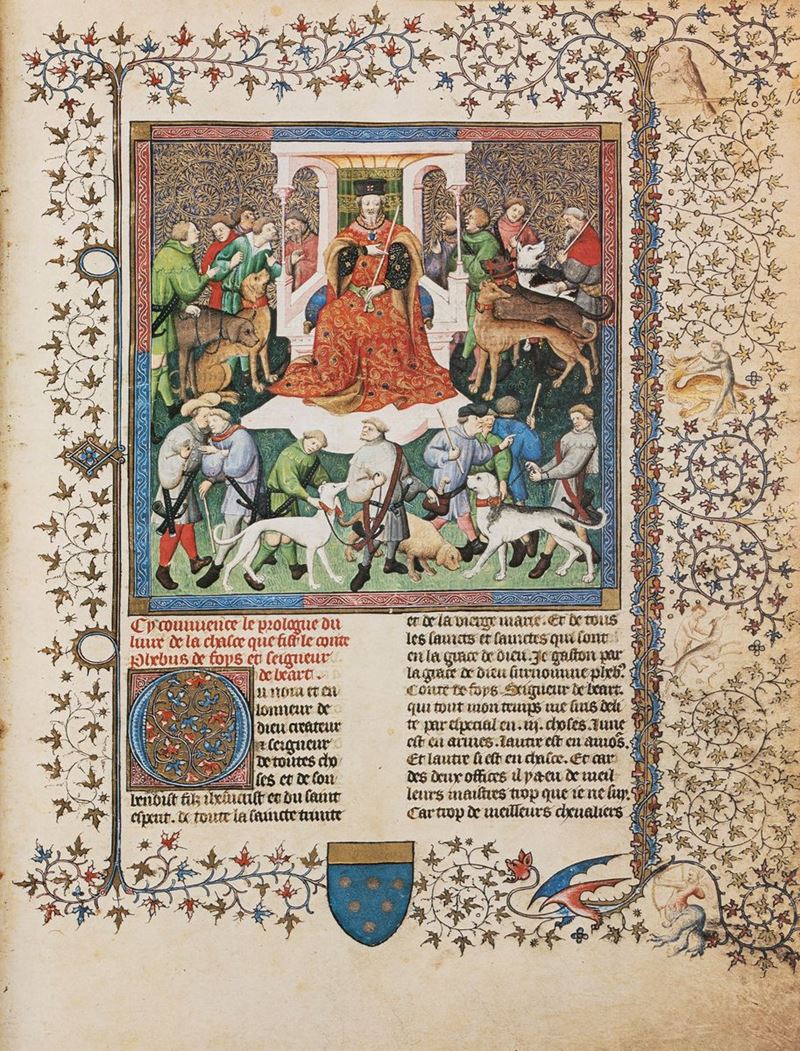 Cy commence le prologue du
liure de la chasce que fist le conte
Phebus de foys et seigneur
de beart.
Ou nom et en
lonneur de
dieu createur
et seigneur
de toutes cho
ses et de son
benoist filz ihesucrist et du saint
esperit. de toute la saincte trinite
et de la vierge marie. Et de tous
les saincts et sainctes qui sont
en la grace de dieu. Je gaston par
la grace de dieu surnomme pheb9.
Conte de foys. Seigneur de beart.
qui tout mon temps me suis deli
te par especial en .iij. choses. lune
est en armes. lautre est en amors.
Et lautre si est en chasce. Et car
des deux offices il y a eu de meil
leurs maistres trop que ie ne suy.
Car trop de meilleurs cheualiers